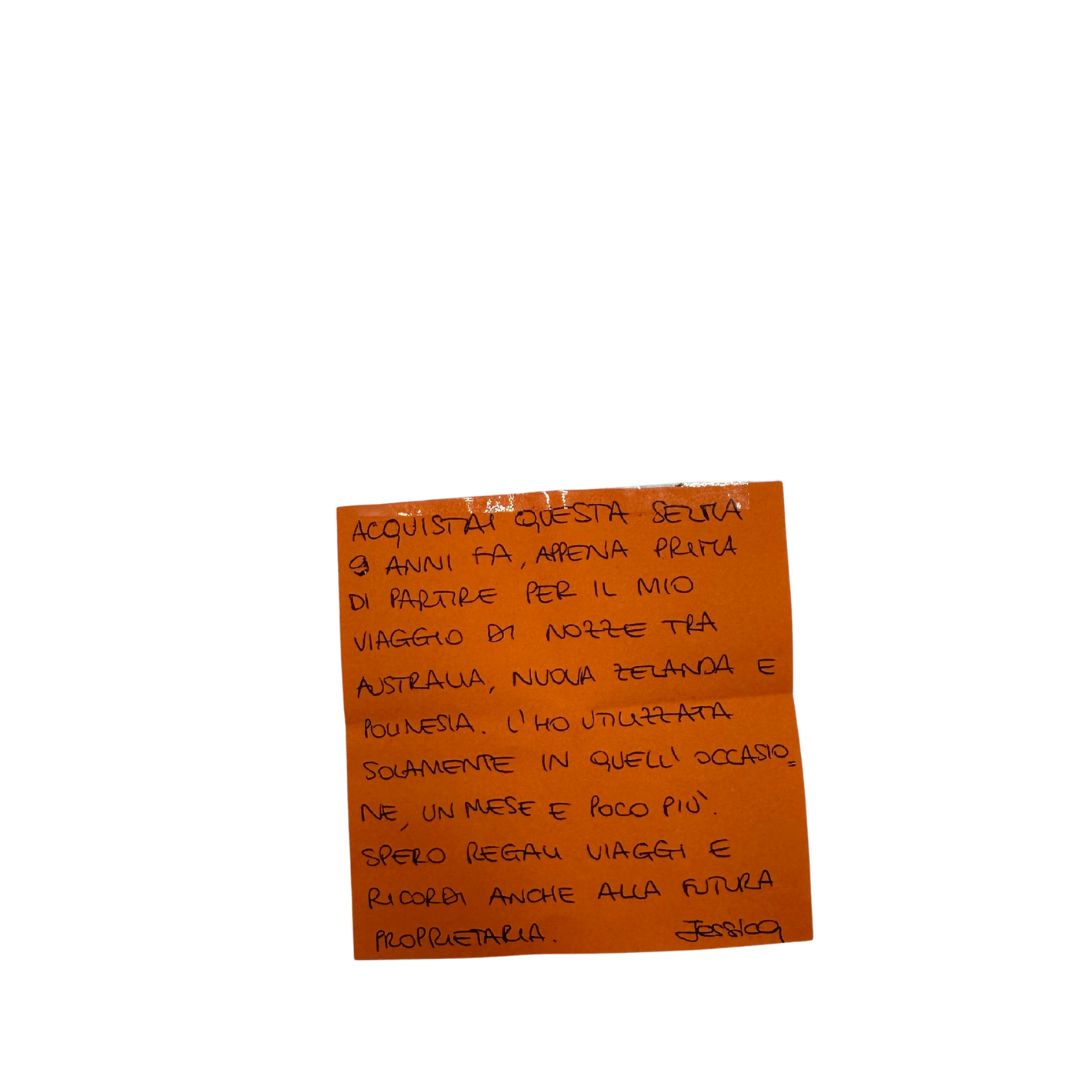 ACQUISTAI QUESTA SELMA
9 ANNI FA, APPENA PRIMA
DI PARTIRE PER IL MIO
VIAGGIO DI NOZZE TRA
AUSTRALIA, NUOVA ZELANDA E
POLINESIA. L'HO UTILIZZATA
SOLAMENTE IN QUELL'OCCASIO=
NE, UN MESE E POCO PIÙ.
SPERO REGALI VIAGGI E
RICORDI ANCHE ALLA FUTURA
PROPRIETARIA. Jessica